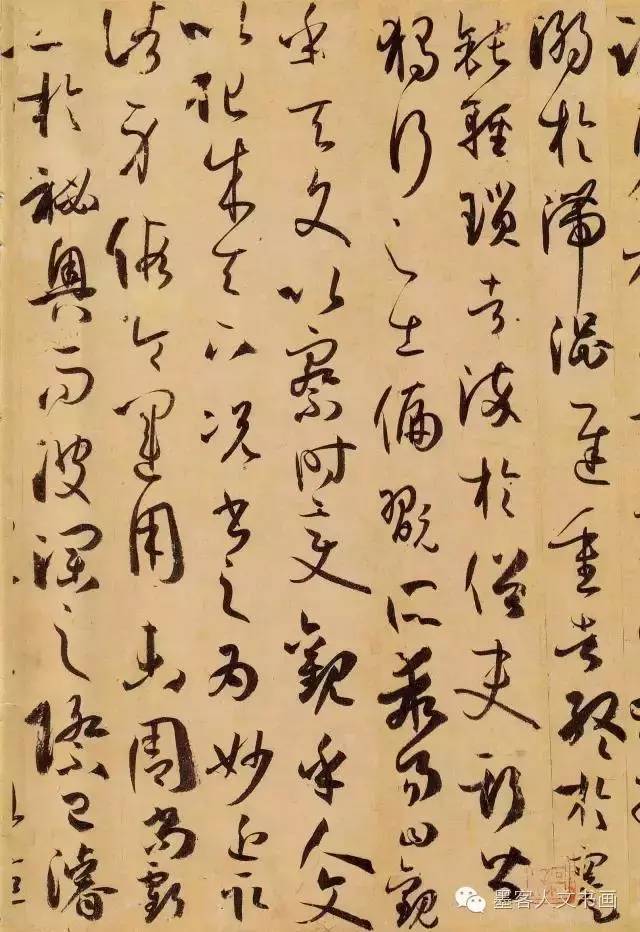 溺於滯澀遲重者終於蹇
鈍輕瑣者染於俗吏斯皆
獨行之士偏翫所乖易曰觀
乎天文以察時變觀乎人文
以化成天下況書之為妙近取
諸身假令運用未周尚虧
工於秘奧而波瀾之際已濬
墨客人文书画